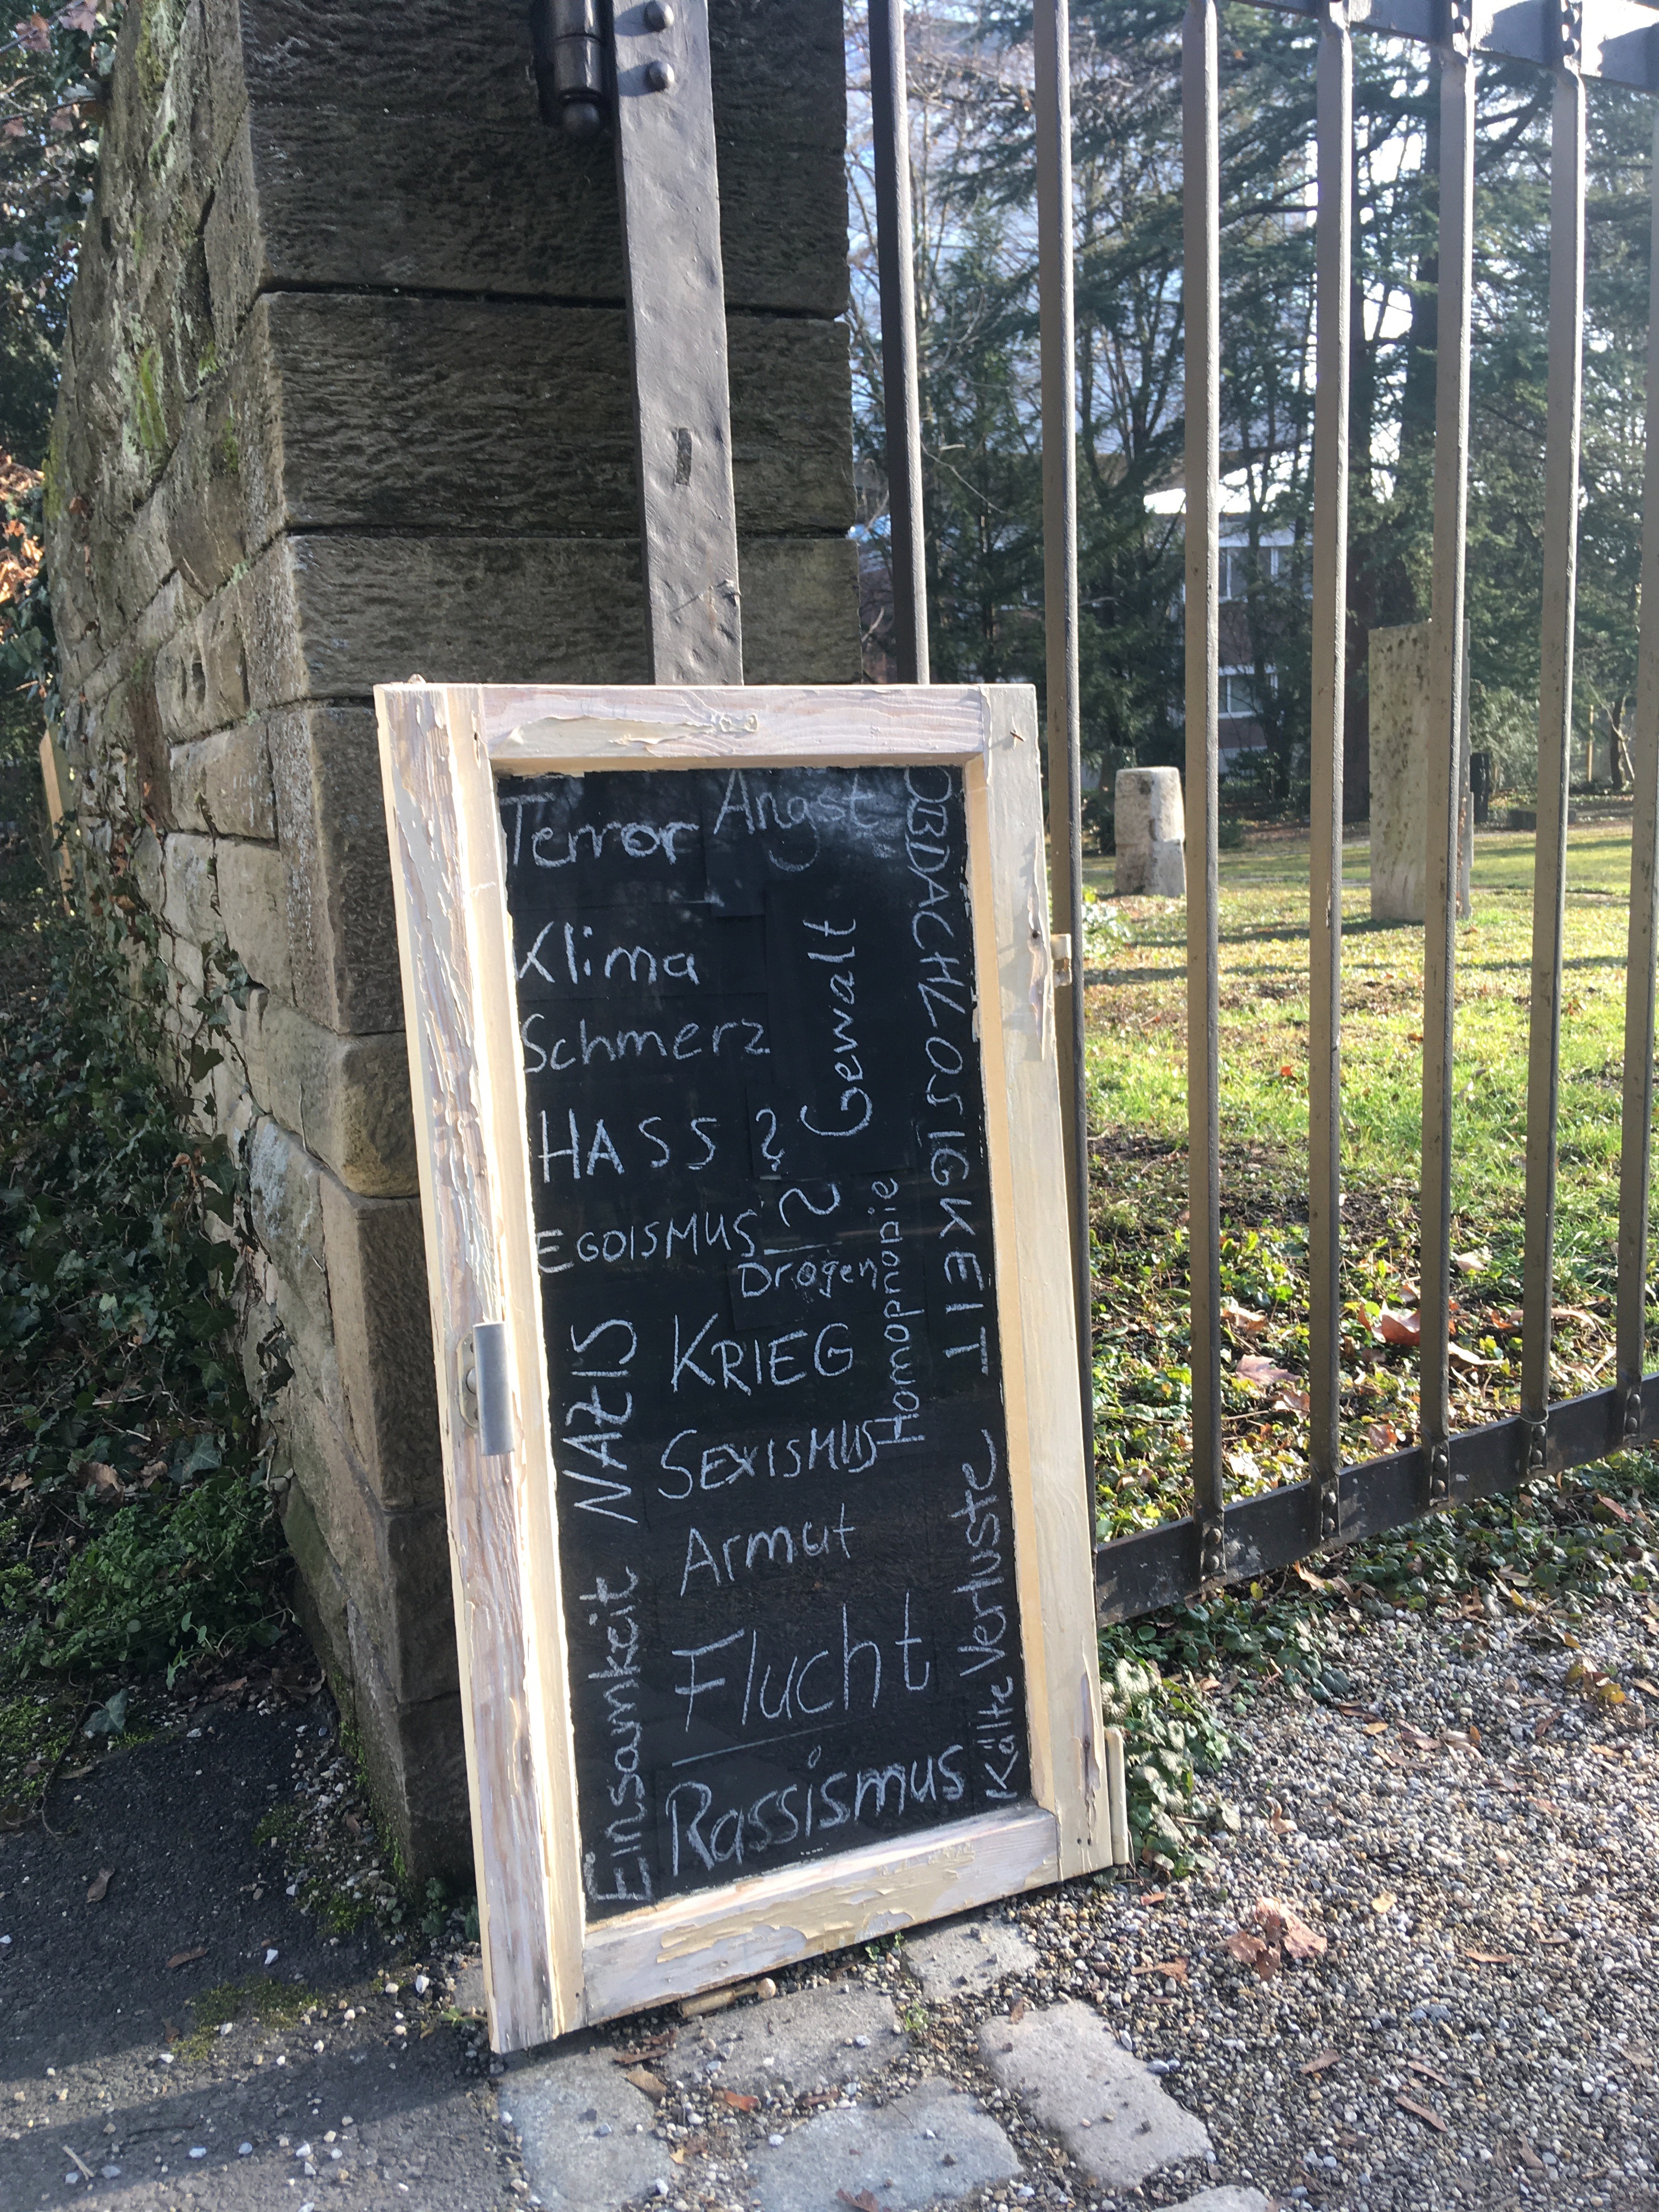 Terror
Angst
OBDACHLOSIGKEIT
Klima
Gewalt
Schmerz
HASS ?
EGOISMUS
Drogen
Homophobie
NAZIS
KRIEG
SEXISMUS
Armut
Kälte Verluste
Einsamkeit
Flucht
Rassismus